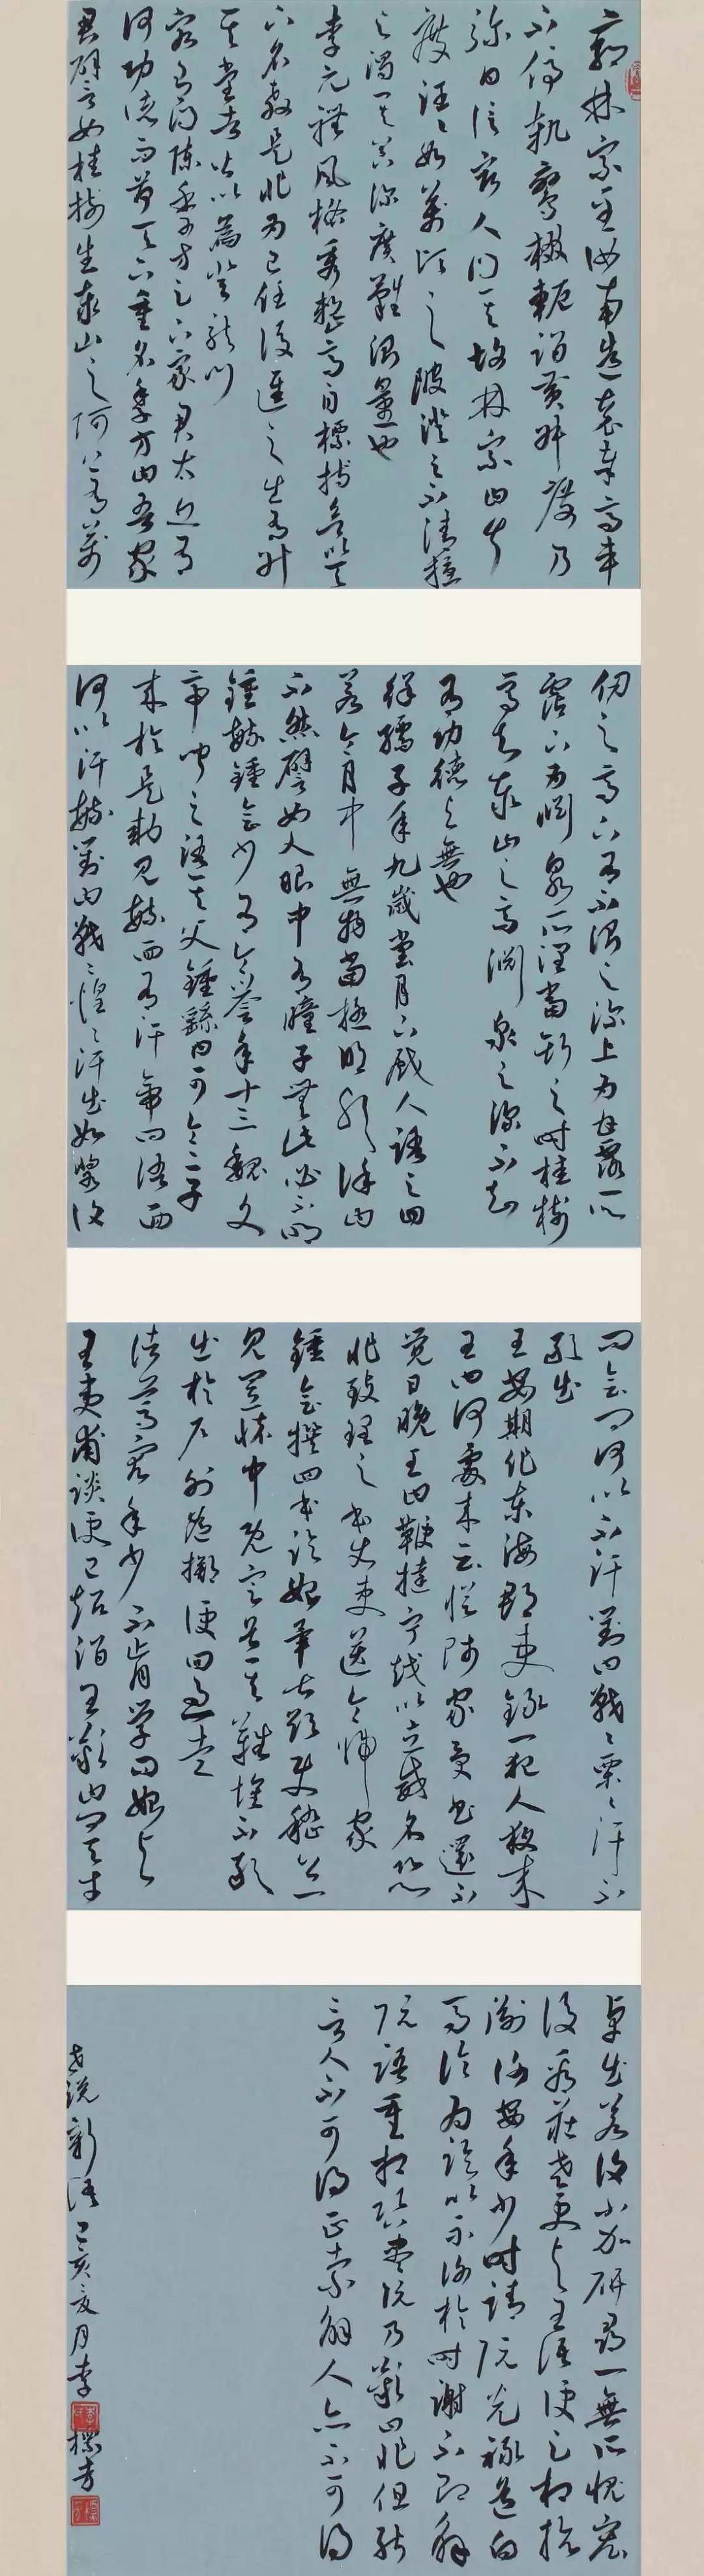 郭林宗至汝南造袁奉高車
不停軌鸞不輟軛詣黃叔度乃
彌日信宿人問其故林宗曰叔
度汪汪如萬頃之陂澄之不清擾
之不濁其器深廣難測量也
李元禮風格秀整高自標持欲以天
下名教是非為己任後進之士有升
其堂者皆以為登龍門
客有問陳季方足下家君太丘有
何功德而荷天下重名季方曰吾家
君譬如桂樹生泰山之阿上有萬
仞之高下有不測之深上為甘露所
霑下為淵泉所潤當斯之時桂樹
焉知泰山之高淵泉之深不知
有功德與無也
徐孺子年九歲嘗月下戲人語之曰
若令月中無物當極明邪徐曰
不然譬如人眼中有瞳子無此必不明
鍾毓鍾會少有令譽年十三魏文
帝聞之語其父鍾繇曰可令二子
來於是敕見毓面有汗帝曰卿面
何以汗毓對曰戰戰惶惶汗出如漿復
問會卿何以不汗對曰戰戰栗栗汗不
敢出
王安期作東海郡吏錄一犯人夜來
王問何處來云從師家受書還不
覺日晚王曰鞭撻甯越以立威名恐
非致理之本使吏送令歸家
鍾會撰四本論始畢甚欲使嵇公一
見置懷中既定畏其難懷不敢
出於戶外遙擲便回急走
諸葛宏年少不肯學問始與
王夷甫談便已超詣王歎曰卿天才
卓出若復小加研尋一無所愧宏
後看莊老更與王語便足相抗
衡謝安年少時請阮光祿道白
馬論為論以示謝於時謝不即解
阮語重相咨盡阮乃歎曰非但能
言人不可得正索解人亦不可得
世說新語己亥夏月李